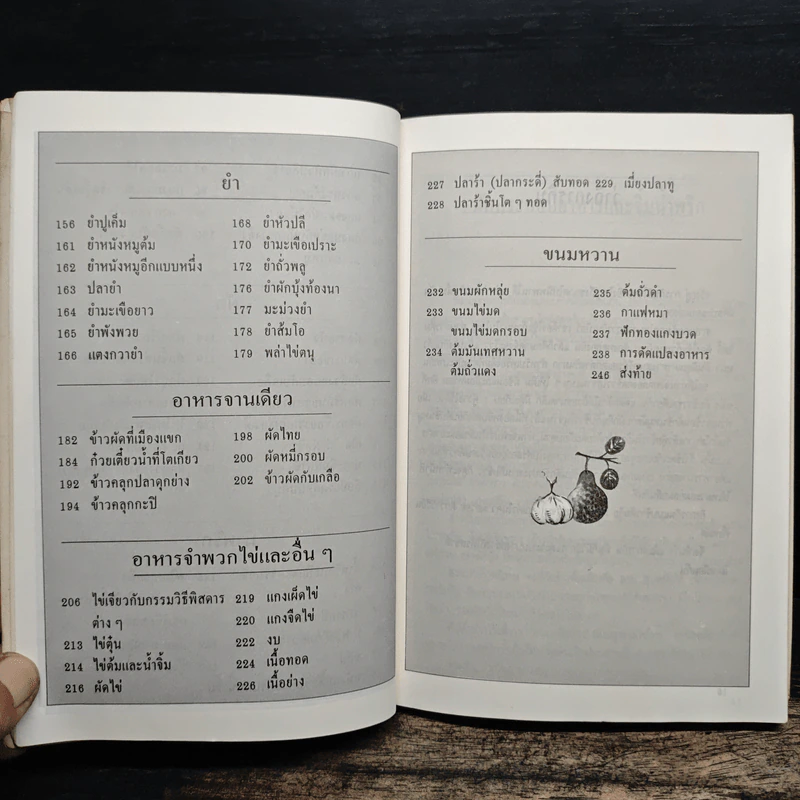 ยำ
156 ยำปูเค็ม
161 ยำหนังหมูต้ม
162 ยำหนังหมูอีกแบบหนึ่ง
163 ปลายำ
164 ยำมะเขือยาว
165 ยำพังพวย
166 แตงกวายำ
168 ยำหัวปลี
170 ยำมะเขือเปราะ
172 ยำถั่วพลู
176 ยำผักบุ้งท้องนา
177 มะม่วงยำ
178 ยำส้มโอ
179 พล่าไข่ตนุ
อาหารจานเดียว
182 ข้าวผัดที่เมืองแขก
184 ก๋วยเตี๋ยวน้ำที่โตเกียว
192 ข้าวคลุกปลาดุกย่าง
194 ข้าวคลุกกะปิ
198 ผัดไทย
200 ผัดหมี่กรอบ
202 ข้าวผัดกับเกลือ
อาหารจำพวกไข่และอื่น ๆ
206 ไข่เจียวกับกรรมวิธีพิสดาร
ต่าง ๆ
213 ไข่ตุ๋น
214 ไข่ต้มและน้ำจิ้ม
216 ผัดไข่
219 แกงเผ็ดไข่
220 แกงจืดไข่
222 งบ
224 เนื้อทอด
226 เนื้อย่าง
227 ปลาร้า (ปลากระดี่) สับทอด 229 เมี่ยงปลาทู
228 ปลาร้าชิ้นโต ๆ ทอด
ขนมหวาน
232 ขนมผักหลุ่ย
233 ขนมไข่มด
ขนมไข่มดกรอบ
234 ต้มมันเทศหวาน
ต้มถั่วแดง
235 ต้มถั่วดำ
236 กาแฟหมา
237 ฟักทองแกงบวด
238 การดัดแปลงอาหาร
246 ส่งท้าย